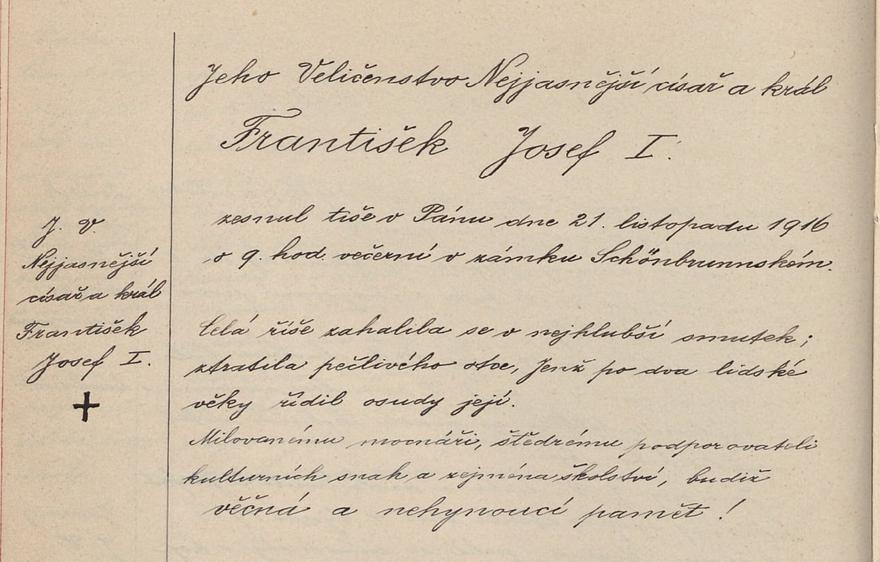 Jeho Veličenstvo Nejjasnější císař a král
František Josef I.
zesnul tiše v Pánu dne 21. listopadu 1916
o 9. hod. večerní v zámku Schönbrunnském.
J. V.
Nejjasnější
císař a král
František
Josef I.
Celá říše zahalila se v nejhlubší smutek;
ztratila pečlivého otce, jenž po dva lidské
věky řídil osudy její.
Milovanému mocnáři, štědrému podporovateli
kulturních snah a zejména školství, budiž
věčná a nehynoucí pamět !